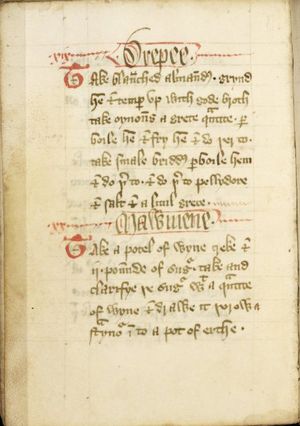 xix Drepee.
Take blanched almandes. grynd
he & temp up with gode broth
take oynons a grete qtite. p
boile he & fry he & do þer to.
take smale bridds pboile hem
& do þer to. & do þer to pellydore
& salt & a litul grece.
xx Mawmene.
Take a potel of wyne greke &
ii. pounde of sugr. take and
clarifye þe sugr wt a qtite
of wyne & drawe it þrow a
streynor in to a pot of erthe.